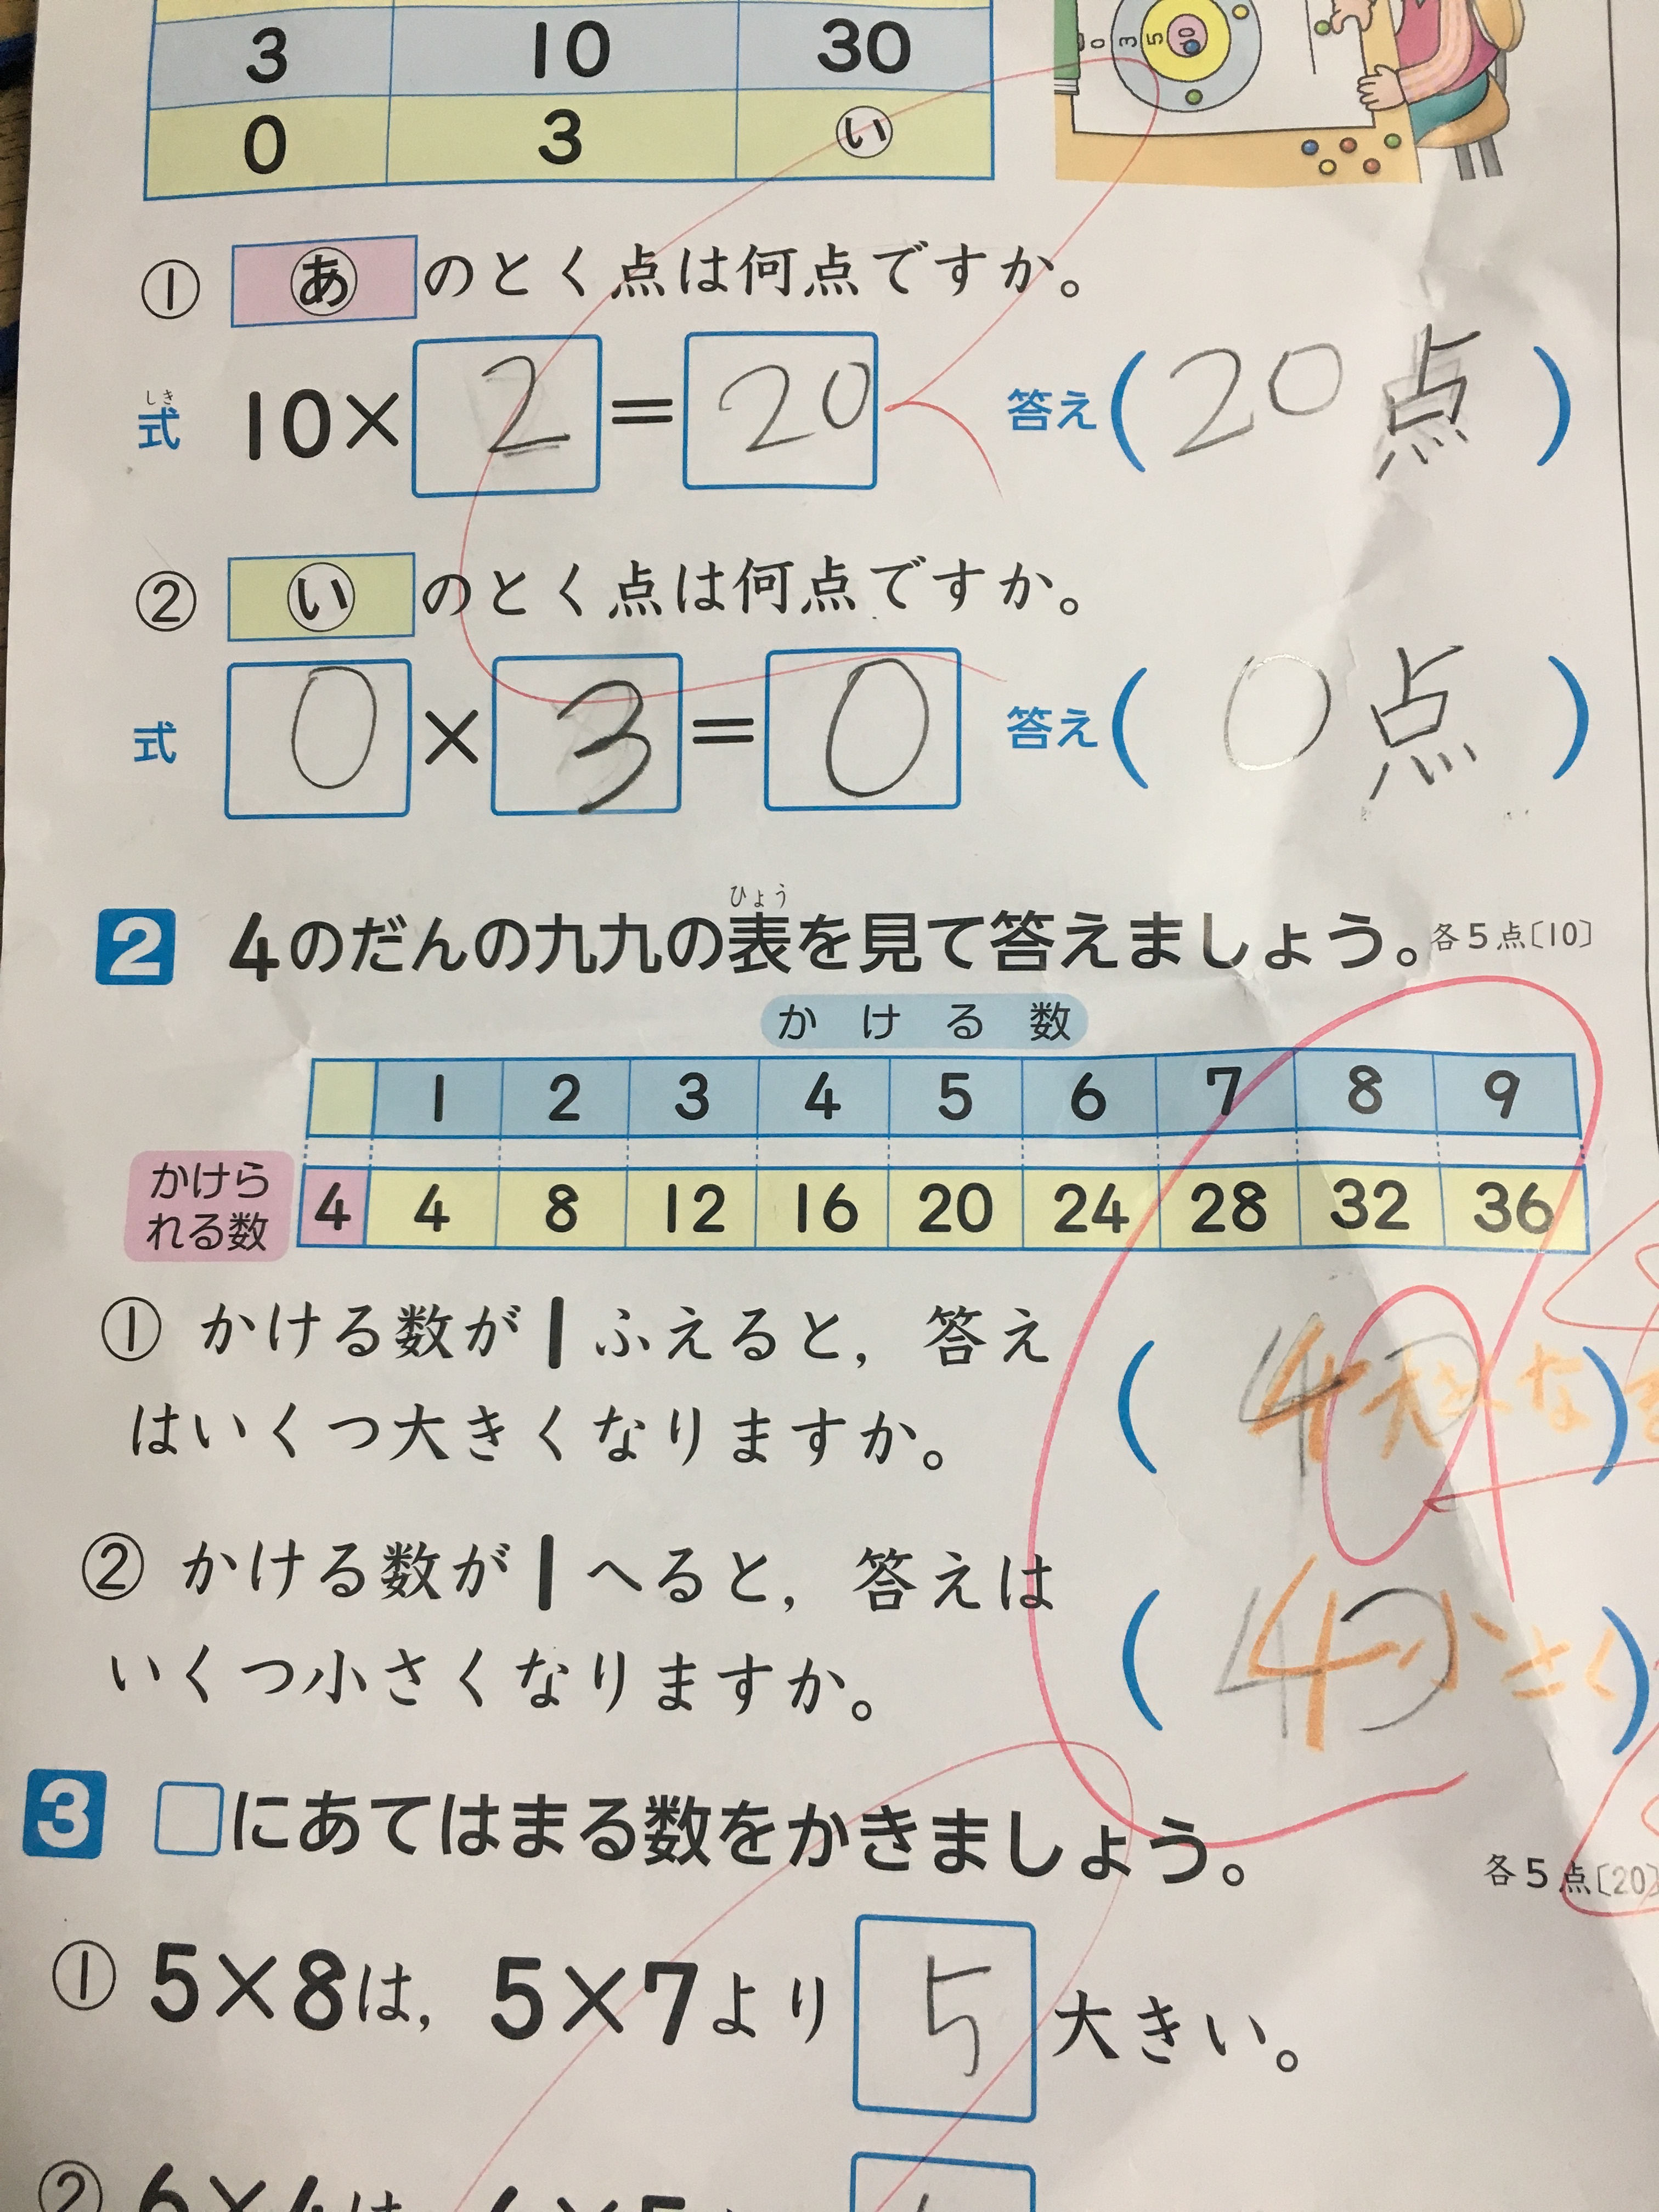 3 10 30
0 3 い
0 3 5 10
① あ のとく点は何点ですか。
しき
式 10× 2 = 20 答え( 20点 )
② い のとく点は何点ですか。
式 0 × 3 = 0 答え( 0点 )
ひょう
2 4のだんの九九の表を見て答えましょう。各5点〔10〕
かける数
1 2 3 4 5 6 7 8 9
かけら
れる数
4 4 8 12 16 20 24 28 32 36
① かける数が1ふえると,答え
はいくつ大きくなりますか。
( 4 大きくな )
② かける数が1へると,答えは
いくつ小さくなりますか。
( 4 小さく )
3 □にあてはまる数をかきましょう。
各5点〔20〕
① 5×8は,5×7より 5 大きい。
② 6×4は,